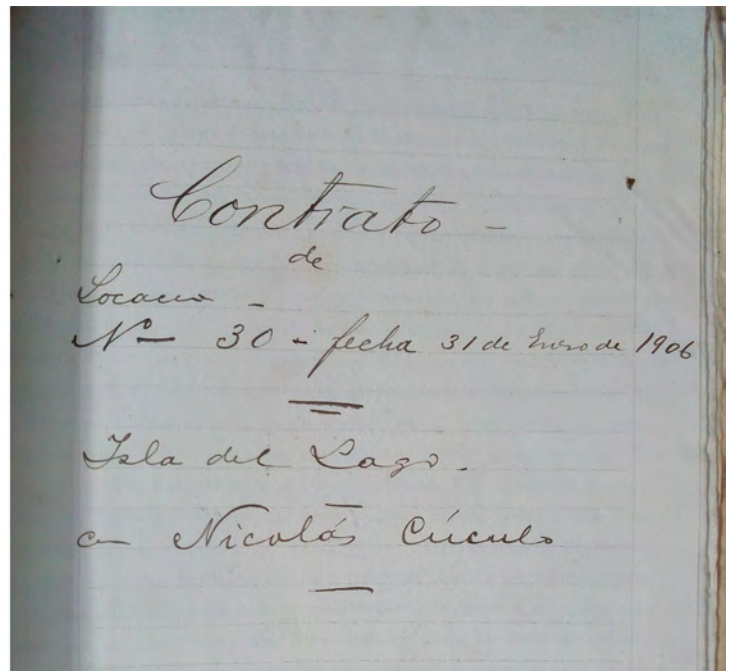 Contrato -
de
Locacio -
Nº 30 - fecha 31 de Enero de 1906
Isla del Lago -
a Nicolás Cúculo